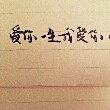 爱你一生我爱你